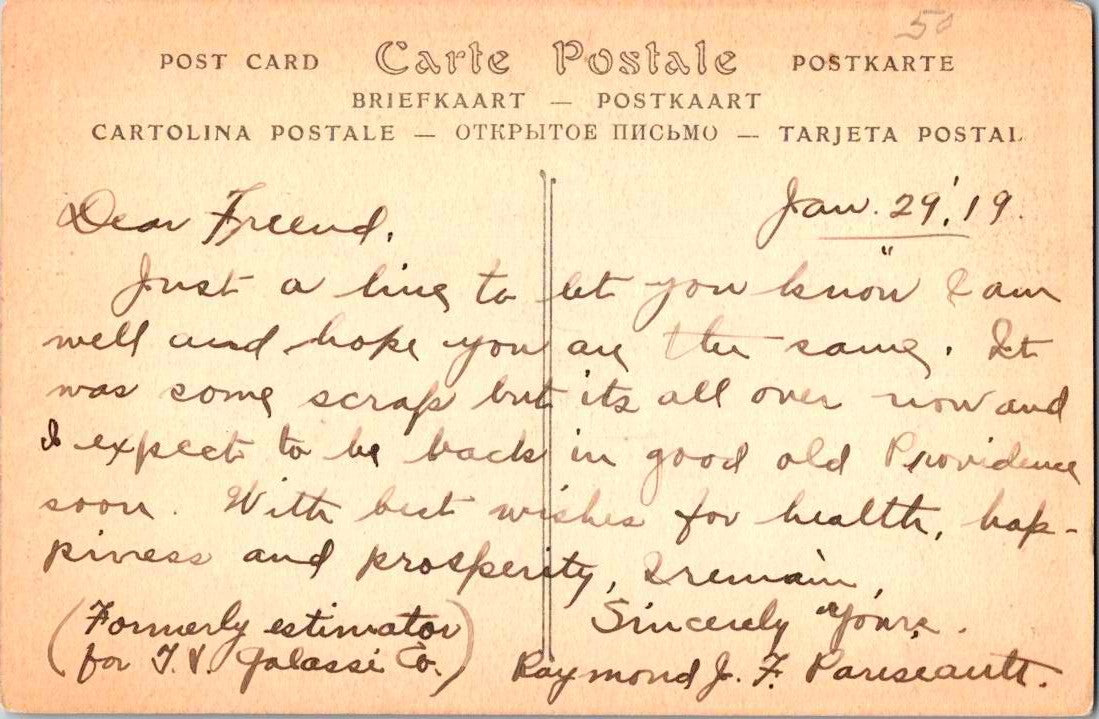 50
POST CARD Carte Postale POSTKARTE
BRIEFKAART — POSTKAART
CARTOLINA POSTALE — ОТКРЫТОЕ ПИСЬМО — TARJETA POSTAL
Jan. 29, '19.
Dear Friend,
Just a line to let you know I am
well and hope you are the same. It
was some scrap but its all over now and
I expect to be back in good old Providence
soon. With best wishes for health, hap-
piness and prosperity, I remain,
Sincerely Yours.
(Formerly estimator
for T. V. Galassi Co.) Raymond J. F. Pariseault.